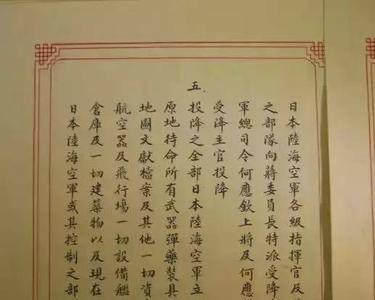 日本陸海空軍各級指揮官及
之部隊向蔣委員長特派受降
軍總司令何應欽上將及何應
受降主官投降
五.
投降之全部日本陸海空軍立
原地待命所有武器彈藥裝具
地圖文獻檔案及其他一切資
航空器及飛行場一切設備艦
倉庫及一切建築物以及現在
日本陸海空軍或其控制之部